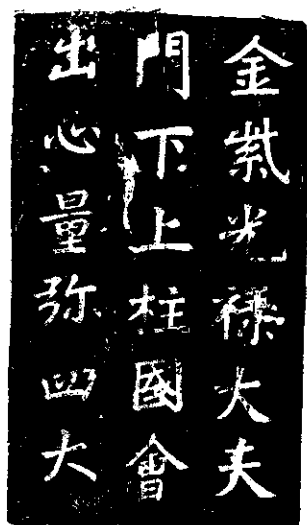 金紫光祿大夫
門下上柱國會
出心量弥四大